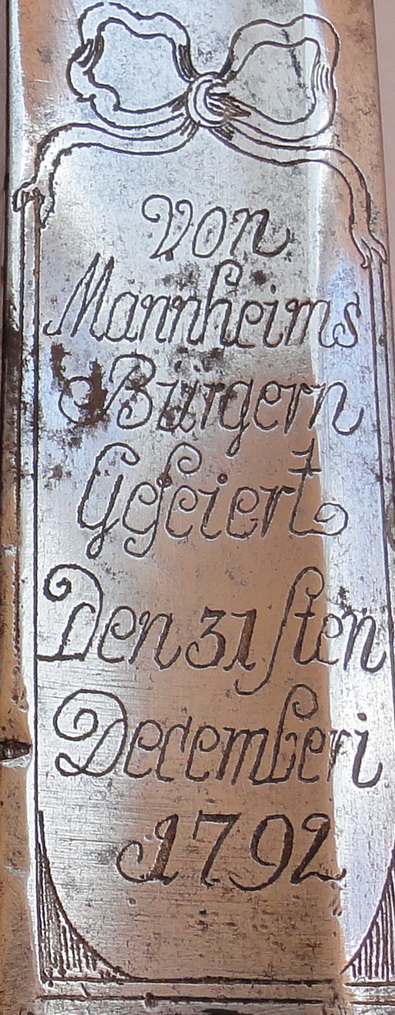 Von
Mannheims
Bürgern
Gefeiert
Den 31 ſten
Decemberi
1792